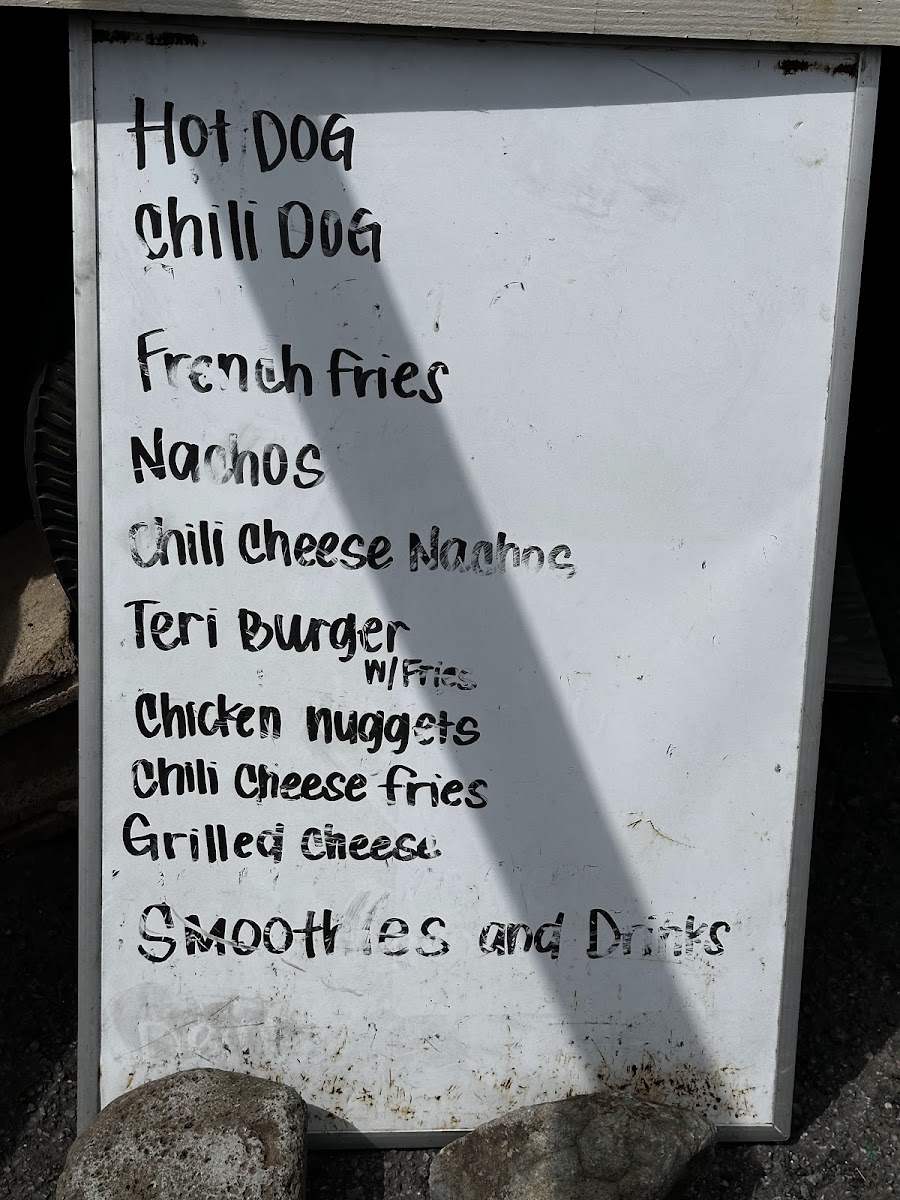 Hot DOG
Chili DOG
French fries
Nachos
Chili Cheese Nachos
Teri Burger
w/Fries
Chicken nuggets
Chili Cheese fries
Grilled Cheese
Smoothies and Drinks